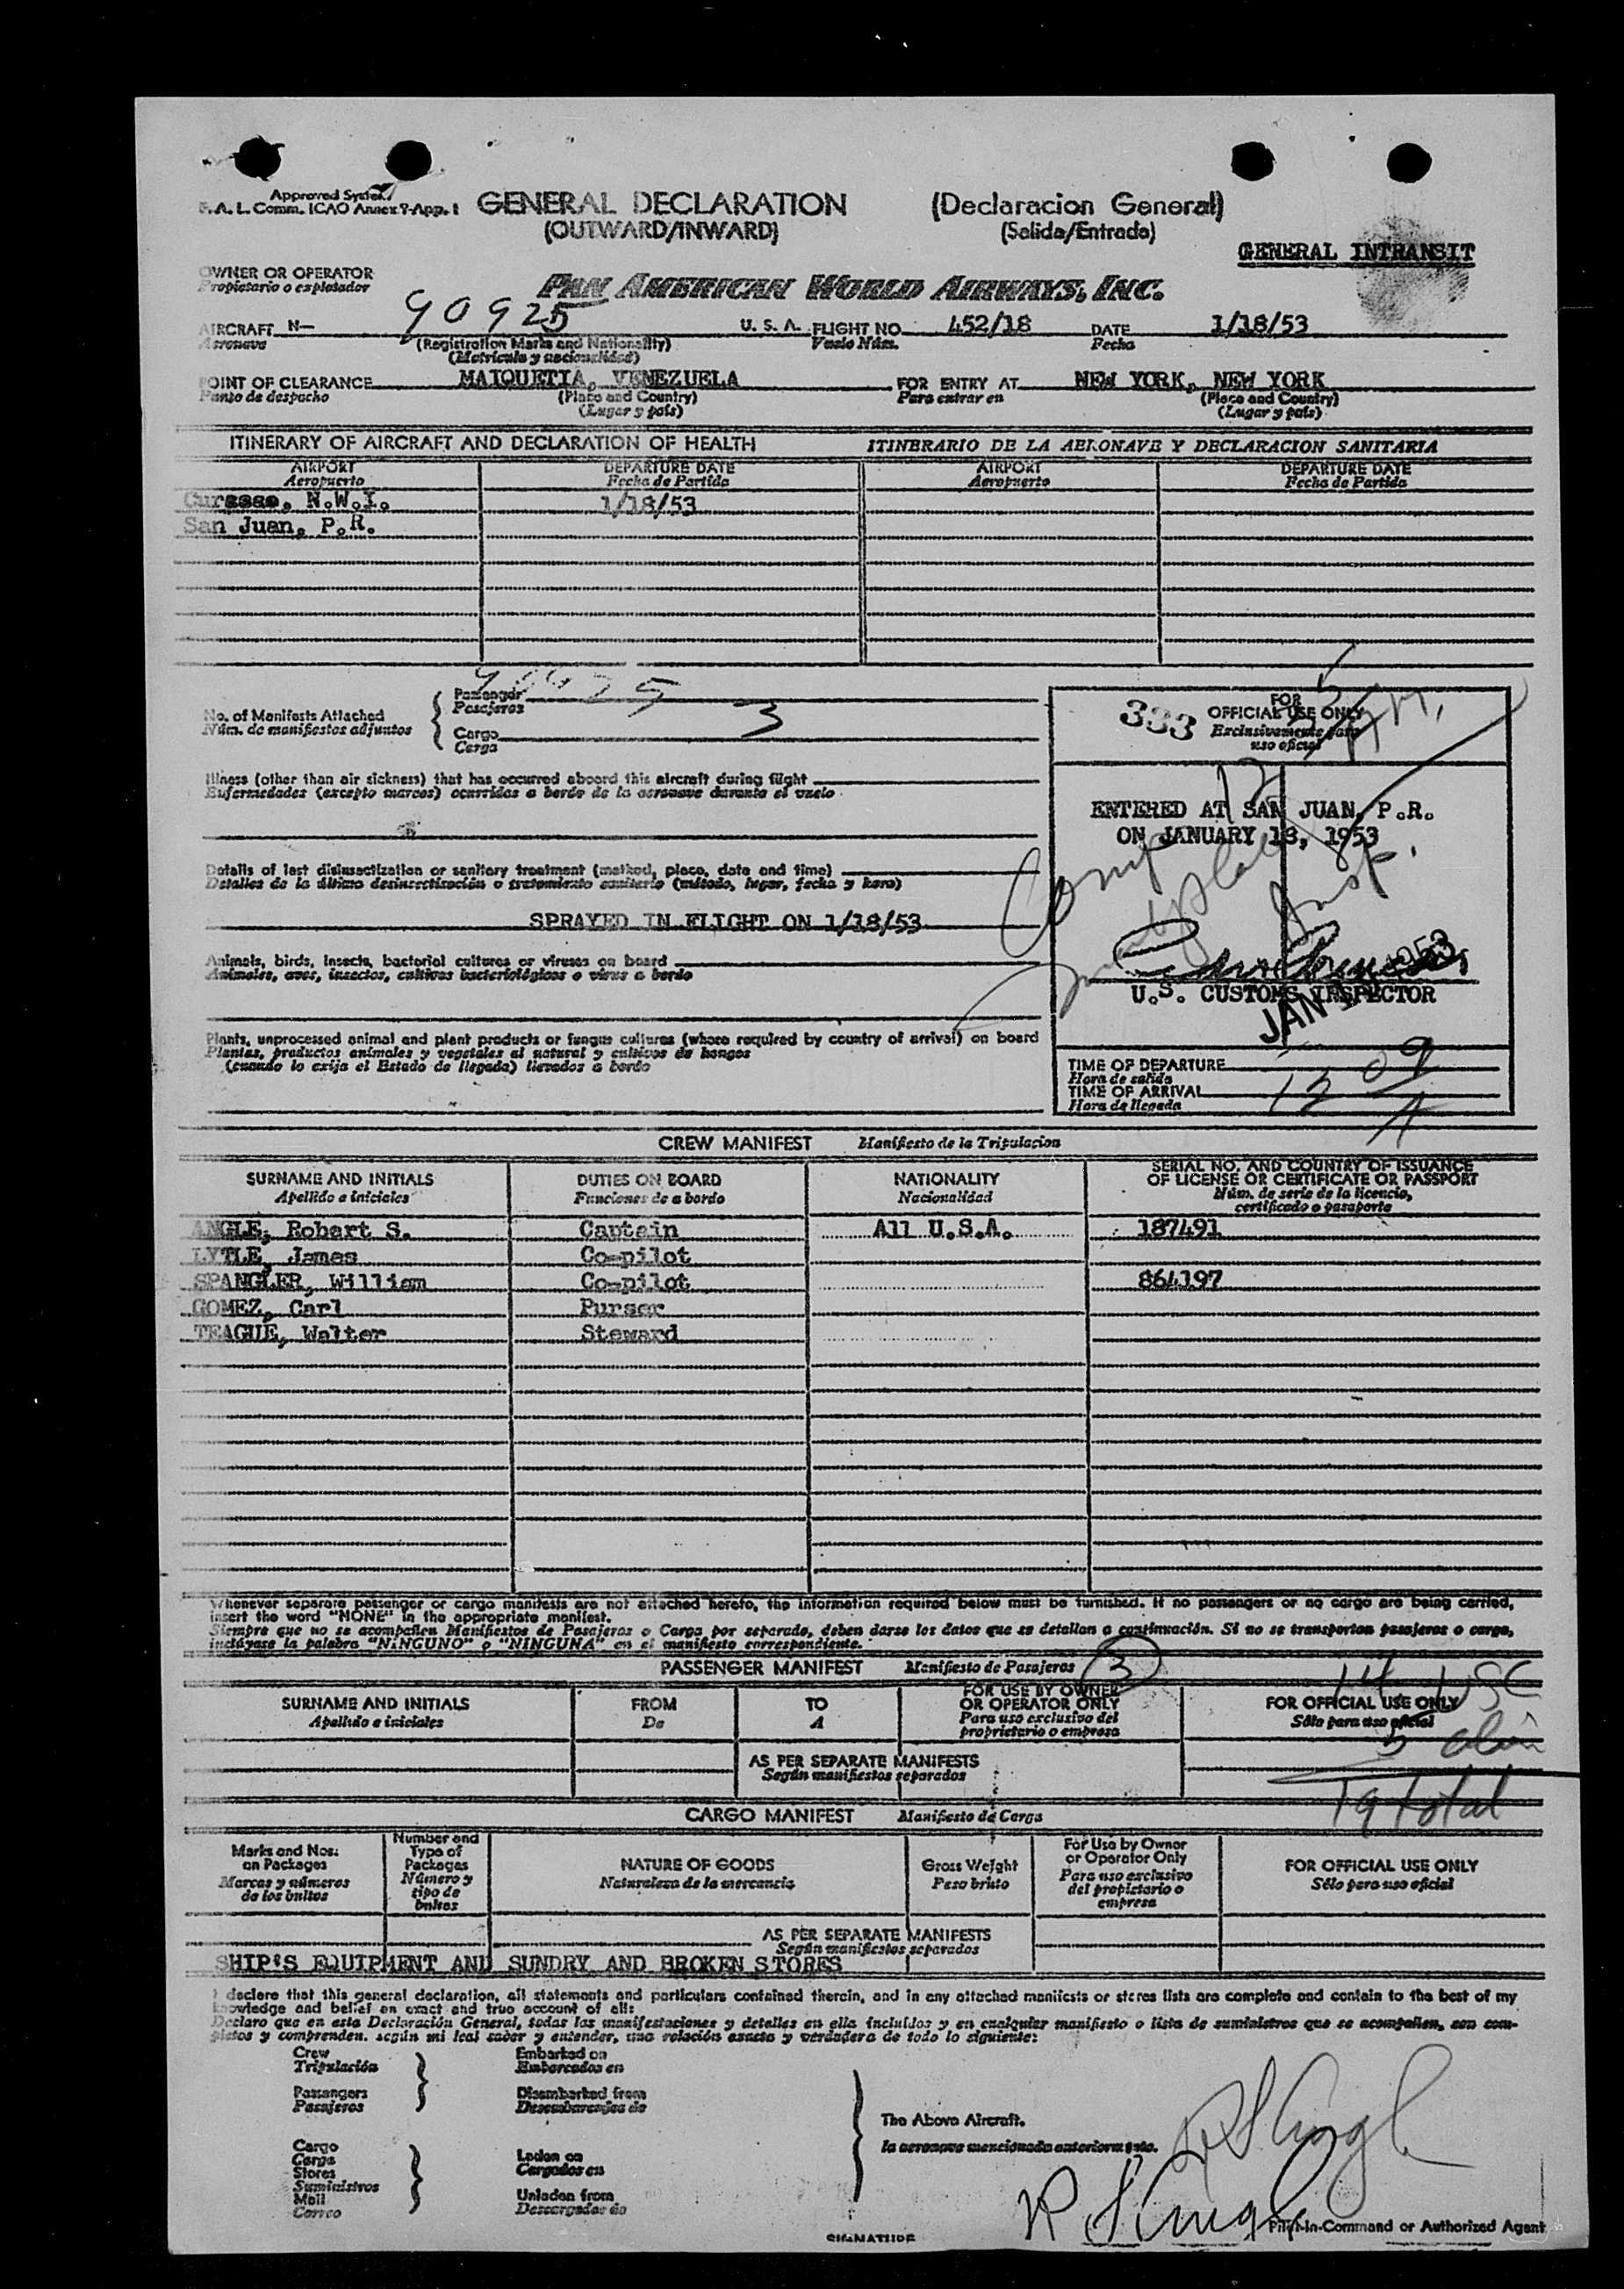 Approved System
F.A.L. Comm. ICAO Annex 9-App. 1
GENERAL DECLARATION (Declaracion General)
(OUTWARD/INWARD) (Salida/Entrada)
GENERAL INTRANSIT
OWNER OR OPERATOR
Propietario o explotador
PAN AMERICAN WORLD AIRWAYS, INC.
AIRCRAFT N— 90925 U. S. A. FLIGHT NO. 452/18 DATE 1/18/53
Aeronave (Registration Marks and Nationality) Vuelo Núm. Fecha
(Matrícula y nacionalidad)
POINT OF CLEARANCE MAIQUETIA, VENEZUELA FOR ENTRY AT NEW YORK, NEW YORK
Punto de despacho (Place and Country) Para entrar en (Place and Country)
(Lugar y país) (Lugar y país)
ITINERARY OF AIRCRAFT AND DECLARATION OF HEALTH ITINERARIO DE LA AERONAVE Y DECLARACION SANITARIA
AIRPORT DEPARTURE DATE AIRPORT DEPARTURE DATE
Aeropuerto Fecha de Partida Aeropuerto Fecha de Partida
Curacao, N.W.I. 1/18/53
San Juan, P.R.
90925
No. of Manifests Attached
Núm. de manifiestos adjuntos
Passenger
Pasajeros
3
Cargo
Carga
Illness (other than air sickness) that has occurred aboard this aircraft during flight
Enfermedades (excepto mareos) ocurridas a bordo de la aeronave durante el vuelo
Details of last disinsectization or sanitary treatment (method, place, date and time)
Detalles de la última desinsectización o tratamiento sanitario (método, lugar, fecha y hora)
SPRAYED IN FLIGHT ON 1/18/53
Animals, birds, insects, bacterial cultures or viruses on board
Animales, aves, insectos, cultivos bacteriológicos o virus a bordo
Plants, unprocessed animal and plant products or fungus cultures (where required by country of arrival) on board
Plantas, productos animales y vegetales al natural y cultivos de hongos
(cuando lo exija el Estado de llegada) llevados a bordo
333
FOR
OFFICIAL USE ONLY
Exclusivamente para
uso oficial
ENTERED AT SAN JUAN, P.R.
ON JANUARY 18, 1953
U.S. CUSTOMS INSPECTOR
TIME OF DEPARTURE
Hora de salida
TIME OF ARRIVAL
Hora de llegada
CREW MANIFEST Manifiesto de la Tripulacion
SURNAME AND INITIALS DUTIES ON BOARD NATIONALITY SERIAL NO. AND COUNTRY OF ISSUANCE
OF LICENSE OR CERTIFICATE OR PASSPORT
Apellido e iniciales Funciones de a bordo Nacionalidad Núm. de serie de la licencia,
certificado o pasaporte
ANGLE, Robert S. Captain All U.S.A. 187491
LYTLE, James Co-pilot
SPANGLER, William Co-pilot 864197
GOMEZ, Carl Purser
TEAGUE, Walter Steward
Whenever separate passenger or cargo manifests are not attached hereto, the information required below must be furnished. If no passengers or no cargo are being carried,
insert the word "NONE" in the appropriate manifest.
Siempre que no se acompañen Manifiestos de Pasajeros o Carga por separado, deben darse los datos que se detallan a continuación. Si no se transportan pasajeros o carga,
inclúyase la palabra "NINGUNO" o "NINGUNA" en el manifiesto correspondiente.
PASSENGER MANIFEST Manifiesto de Pasajeros 3
14 USC
SURNAME AND INITIALS FROM TO FOR USE BY OWNER
OR OPERATOR ONLY FOR OFFICIAL USE ONLY
Apellido e iniciales De A Para uso exclusivo del
propietario o empresa Sólo para uso oficial
5 alien
AS PER SEPARATE MANIFESTS
Según manifiestos separados
19 total
CARGO MANIFEST Manifiesto de Carga
Marks and Nos.
on Packages
Marcas y números
de los bultos
Number and
Type of
Packages
Número y
tipo de
bultos
NATURE OF GOODS
Naturaleza de la mercancía
Gross Weight
Peso bruto
For Use by Owner
or Operator Only
Para uso exclusivo
del propietario o
empresa
FOR OFFICIAL USE ONLY
Sólo para uso oficial
AS PER SEPARATE MANIFESTS
Según manifiestos separados
SHIP'S EQUIPMENT AND SUNDRY AND BROKEN STORES
I declare that this general declaration, all statements and particulars contained therein, and in any attached manifests or stores lists are complete and contain to the best of my
knowledge and belief an exact and true account of all:
Declaro que en esta Declaración General, todas las manifestaciones y detalles en ella incluídos y en cualquier manifiesto o lista de suministros que se acompañen, son com-
pletos y comprenden, según mi leal saber y entender, una relación exacta y verdadera de todo lo siguiente:
Crew
Tripulación
Passengers
Pasajeros
Embarked on
Embarcados en
Disembarked from
Desembarcados de
Cargo
Carga
Stores
Suministros
Mail
Correo
Laden on
Cargados en
Unladen from
Descargados de
The Above Aircraft.
la aeronave mencionada anteriormente.
R S Angle
R S Angle
SIGNATURE
Pilot-in-Command or Authorized Agent